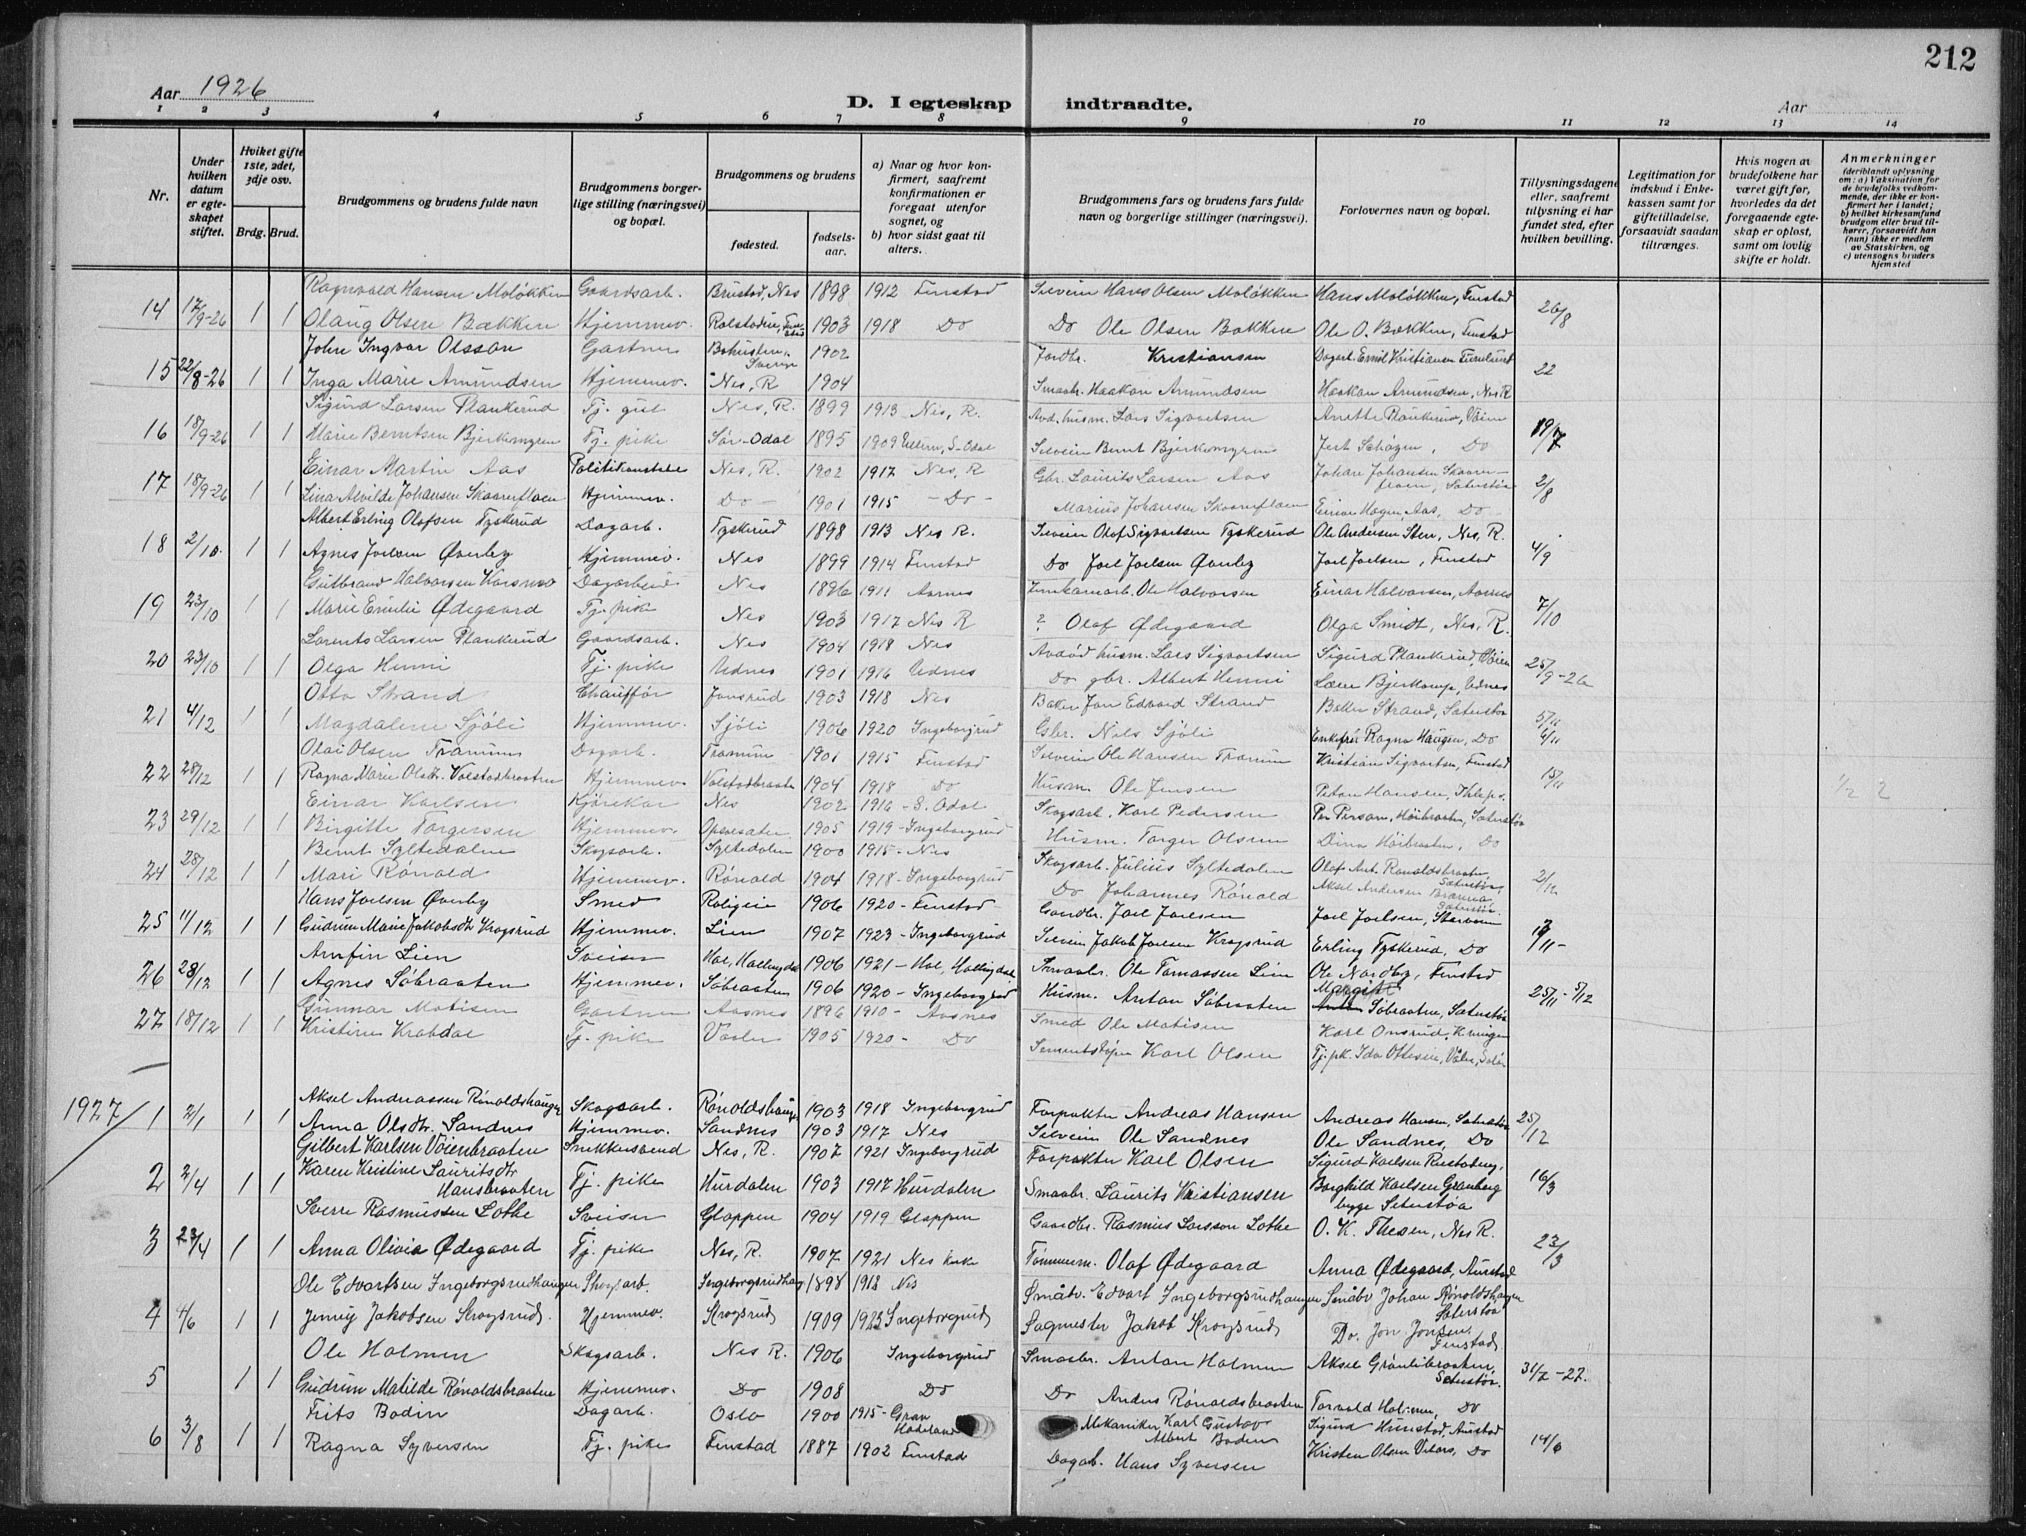 212
Aar 1926
D. I egteskap indtraadte.
Aar
1 2 3 4 5 6 7 8 9 10 11 12 13 14
Nr.
Under hvilken datum er egteskapet stiftet.
Hviket gifte 1ste, 2det, 3dje osv.
Brdg. Brud.
Brudgommens og brudens fulde navn
Brudgommens borgerlige stilling (næringsvei) og bopæl.
Brudgommens og brudens
fødested. fødselsaar.
a) Naar og hvor konfirmert, saafremt konfirmationen er foregaat utenfor sognet, og
b) hvor sidst gaat til alters.
Brudgommens fars og brudens fars fulde navn og borgerlige stillinger (næringsvei).
Forlovernes navn og bopæl.
Tillysningsdagene eller, saafremt tillysning ei har fundet sted, efter hvilken bevilling.
Legitimation for indskud i Enkekassen samt for giftetilladelse, forsaavidt saadan tiltrænges.
Hvis nogen av brudefolkene har været gift før, hvorledes da det foregaaende egteskap er opløst, samt om lovlig skifte er holdt.
Anmerkninger (deriblandt oplysning om: a) Vaksination for de brudefolks vedkommende, der ikke er konfirmert her i landet; b) hvilket kirkesamfund brudgom eller brud tilhører, forsaavidt han (hun) ikke er medlem av Statskirken, og c) utensogns bruders hjemsted
Ragnvald Hansen Moløkken Gaardsarb. Brustad, Nes 1898 1912 Finstad Selveier Hans Olsen Moløkken Hans Moløkken, Finstad
14 17/9-26 1 1 Olaug Olsen Bakken Hjemmev. 1903 1918 Do Do Ole Olsen Bakken Ole O. Bakken, Finstad 26/8
John Ingvar Olsson Gartner Bohuslen, Sverige 1902 Jordbr. Kristiansen Dagarb. Emil Kristiansen
15 22/8-26 1 1 Inga Marie Amundsen Hjemmev. Nes, R 1904 Smaabr. Haakon Amundsen Haakon Amundsen, Nes R 22
Sigurd Larsen Plankerud Tj. gut Nes, R. 1899 1913 Nes, R. Avd. husm. Lars Sigvartsen Anette Plankerud, Vøien
16 18/9-26 1 1 Marie Berntsen Bjerkomgren Tj. pike Sør-Odal 1895 1909 S-Odal Selveier Bernt Bjerkomgren Do 19/7
Einar Martin Aas Politikonstabel Nes, R. 1902 1917 Nes, R Gbr. Laurits Larsen Aas Johan Johansen Skaarerfloen, Seterstøa
17 18/9-26 1 1 Lina Alvilde Johansen Skaarerfloen Hjemmev. Do 1901 1915 Do Marius Johansen Skaarerfloen Einar Hagen Aas, Do 2/8
Albert Erling Olafsen Tyskerud Dagarb. Tyskerud 1898 1913 Nes R. Selveier Olaf Sigvartsen Tyskerud Ole Andersen Sten, Nes, R.
18 2/10. 1 1 Agnes Joelsen Øverby Hjemmev. Nes 1899 1914 Finstad Do Joel Joelsen Øverby Joel Joelsen, Finstad 4/9
Gutbrand Halvorsen Korsmo Dagarbeid. Nes 1896 1911 Aarnes Ole Halvorsen Einar Halvorsen, Aarnes
19 23/10 1 1 Marie Emilie Ødegaard Tj. pike Nes 1903 1917 Nes R ? Olaf Ødegaard Olga Smidt, Nes, R. 7/10
Lorents Larsen Plankerud Gaardsarb. Nes 1904 1918 Nes Avdød husm. Lars Sigvartsen Sigurd Plankerud, Vøien
20 23/10 1 1 Olga Henni Tj. pike Udnes 1901 1916 Udnes Do gbr. Albert Henni Bjerkomp, Udnes 25/9-26
Otto Strand Chauffør Jonsrud 1903 1918 Nes Baker Jon Edvard Strand Strand, Seterstøa
21 4/12 1 1 Magdalene Sjøli Hjemmev. Sjøli 1906 1920 Ingeborgrud Gbr. Nils Sjøli Enkefru Ragna Haugen, Do 5/11 6/11
Olai Olsen Tranum Dagarb. Tranum 1901 1915 Finstad Selveier Ole Hansen Tranum Kristian Sigvartsen, Finstad
22 28/12 1 1 Ragna Marie Olsdt. Volstadbraaten Hjemmev. Volstadbraaten 1904 1918 Do Husm. Ole Jensen Petan Hansen, 15/11 1/2 2
Einar Karlsen Kjørekar Nes 1902 1916 - S. Odal Skogsarb. Karl Pedersen Per Persson, Høibraaten, Seterstøa
23 29/12 1 1 Birgitte Torgersen Hjemmev. 1905 1919 - Ingeborgrud Husm. Torger Olsen Dina Høibraaten, Do
Bernt Syltedalen Skogsarb. Syltedalen 1900 1915 - Nes Skogsarb. Julius Syltedalen Olaf Ant. Ronaldsbraaten, Seterstøa
24 28/12 1 1 Mari Rønold Hjemmev. Rønold 1904 1918 - Ingeborgrud Do Johannes Rønold Aksel Andersen Seterstøa 2/12
Hans Joelsen Øverby Smed 1906 1920 - Finstad Gaardbr. Joel Joelsen Joel Joelsen,
25 11/12 1 1 Gudrun Marie Jakobsdt Krogsrud Hjemmev. Lien 1907 1923 - Ingeborgrud Selveier Jakob Joelsen Krogsrud Erling Tyskerud, Do
Arnfin Lien Sveiser Hol, Hallingdal 1906 1921 - Hol, Hallingdal Smaabr. Ole Tomassen Lien Ole Nordby, Finstad
26 28/12 1 1 Agnes Søbraaten Hjemmev. Søbraaten 1906 1920 - Ingeborgrud Husm. Anton Søbraaten Margit Søbraaten, Seterstøa 25/11 - 5/12
Gunnar Matisen Gartner Aasnes 1896 1910 - Aasnes Smed Ole Matisen Karl Onsrud,
27 18/12 1 1 Kristine Krabdal Tj. pike Vaaler 1905 1920 - Do Karl Olsen Tj. pk. Ida Ottesen, Våler, Solør
1927
Aksel Andreassen Rønoldshaugen Skogsarb. Rønoldshaugen 1903 1918 Ingeborgrud Forpakter Andreas Hansen Andreas Hansen, Seterstøa
1 2/1 1 1 Anna Olsdtr. Sandnes Hjemmev. Sandnes 1903 1917 Nes Selveier Ole Sandnes Ole Sandnes, Do 25/12
Gilbert Karlsen Vøienbraaten Snekkersvend Nes, R. 1907 1921 Ingeborgrud Forpakter Karl Olsen Sigurd Karlsen Rustaberg,
2 2/4 1 1 Karen Kristine Lauritsdtr Hansbraaten Tj. pike Hurdalen 1903 1917 Hurdalen Smaabr. Laurits Kristiansen Borghild Karlsen Granberg bygge Seterstøa 16/3
Sverre Rasmussen Lothe Sveiser Gloppen 1904 1919 Gloppen Gaardbr. Rasmus Larsson Lothe O. K. Thesen, Nes R.
3 23/4 1 1 Anna Olivia Ødegaard Tj. pike Nes, R. 1907 1921 Nes kirke Tømmerm. Olaf Ødegaard Anna Ødegaard, Aurstad 23/3
Ole Edvartsen Ingeborgsrudhaugen Skogarb. Ingeborgsrudhaug. 1898 1912 Nes Småbr. Edvart Ingeborgsrudhaugen Småbr Johan Rønoldshaugen Seterstøa
4 4/6 1 1 Jenny Jakobsen Krogsrud. Hjemmev. Krogsrud 1909 1923 Ingeborgrud Sagmester Jakob Krogsrud Do. Jon Jonsen, Finstad
Ole Holmen Skogsarb. Nes R. 1906 Ingeborgrud Smaabr. Anton Holmen Aksel Grønlibraaten, Seterstøa
5 1 1 Gudrun Matilde Rønoldsbraaten Hjemmev. Do 1908 Do Do Anders Rønoldsbraaten Torvald Holmen, Do 31/7-27.
Frits Bodin Dagarb. Oslo 1900 1915 - Gran Hadeland Mekaniker Karl Gustav Albert Boden Sigurd Hunstad, Aurstad
6 3/8 1 1 Ragna Syversen Tj. pike Finstad 1887 1902 Finstad Dagarb. Hans Syversen Kristen Olsen Do 14/6